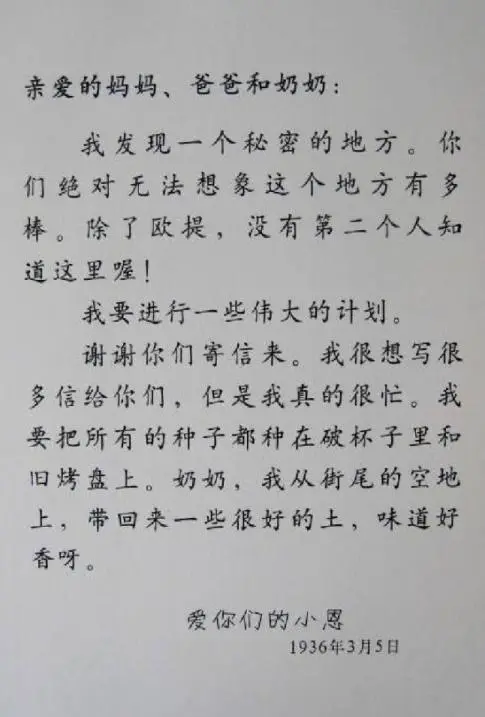 亲爱的妈妈、爸爸和奶奶：
我发现一个秘密的地方。你
们绝对无法想象这个地方有多
棒。除了欧提，没有第二个人知
道这里喔！
我要进行一些伟大的计划。
谢谢你们寄信来。我很想写很
多信给你们，但是我真的很忙。我
要把所有的种子都种在破杯子里和
旧烤盘上。奶奶，我从街尾的空地
上，带回来一些很好的土，味道好
香呀。
爱你们的小恩
1936年3月5日